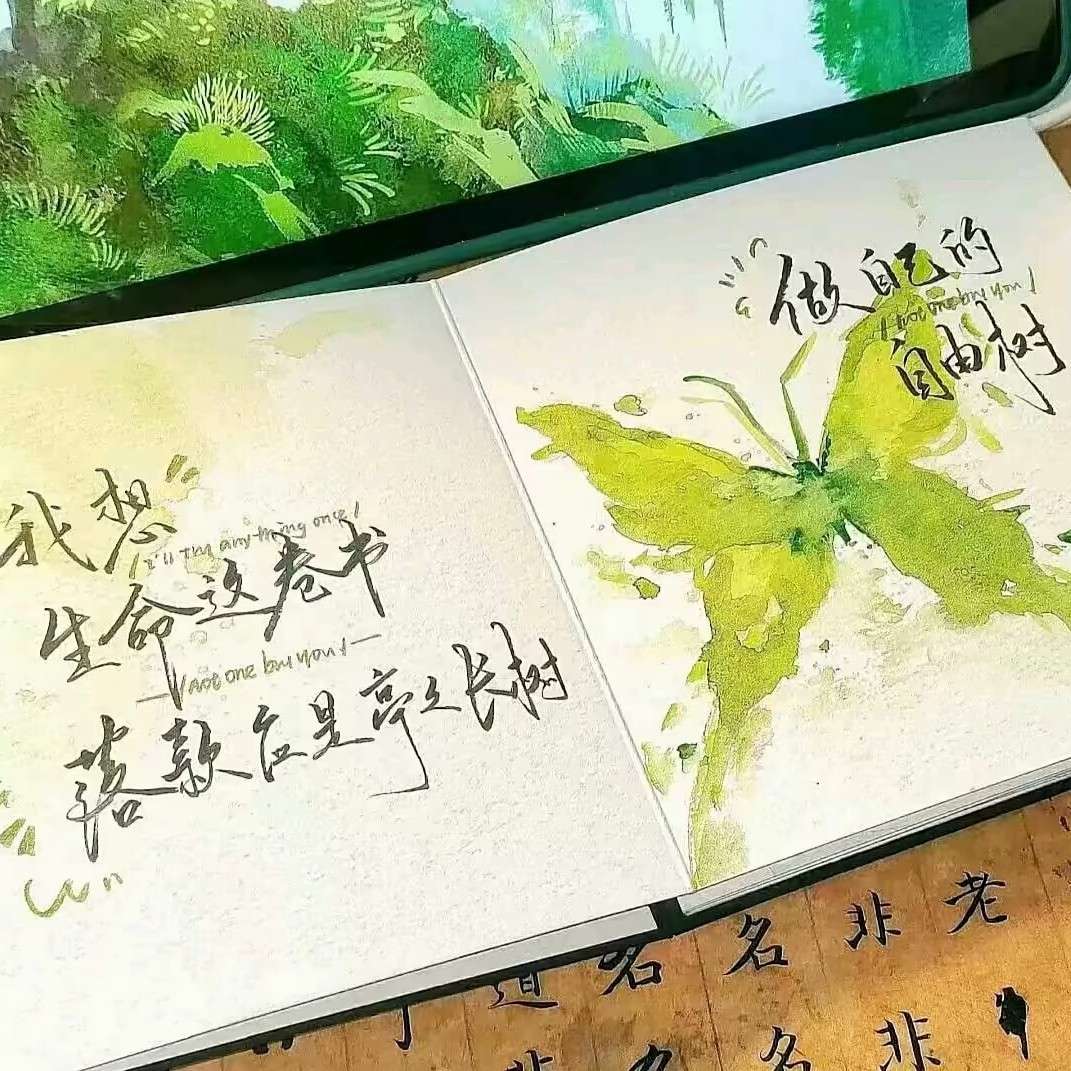 我想
I'll Try anything once!
生命这卷书
Not one but you!
落款应是亭々长树
做自己的
Not one but you!
自由树
老
非非
名名
名名
道非